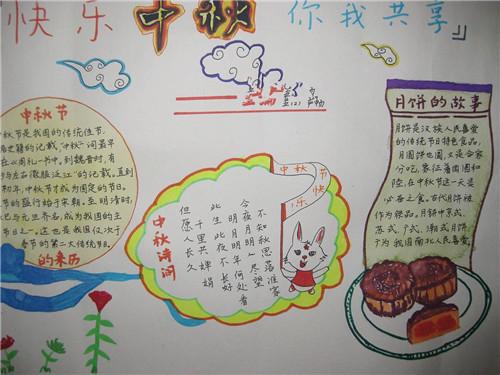 快乐中秋 你我共享』
中秋节
秋节是我国的传统佳节。
史籍的记载，“中秋”一词最早
在《周礼》一书中，到魏晋时，有
与左右微服泛江”的记载，直到
初年，中秋节才成为固定的节日。
的盛行始于宋朝，至明清时，
已与元旦齐名，成为我国的主
节日之一。这也是我国仅次于
春节的第二大传统节日。
的来历
中秋
节快
乐
不知秋思落谁家
今夜月明人尽望
明月明年何处看
此生此夜不长好
千里共婵娟
但愿人长久
中秋诗词
月饼的故事
月饼是汉族人民喜爱
的传统节日特色食品，
月圆饼也圆，又是合家
分吃，象征着团圆和
睦，在中秋节这一天是
必备之食。古代月饼被
作为祭品。月饼中京式、
苏式、广式、潮式月饼
广为我国南北人民喜爱。